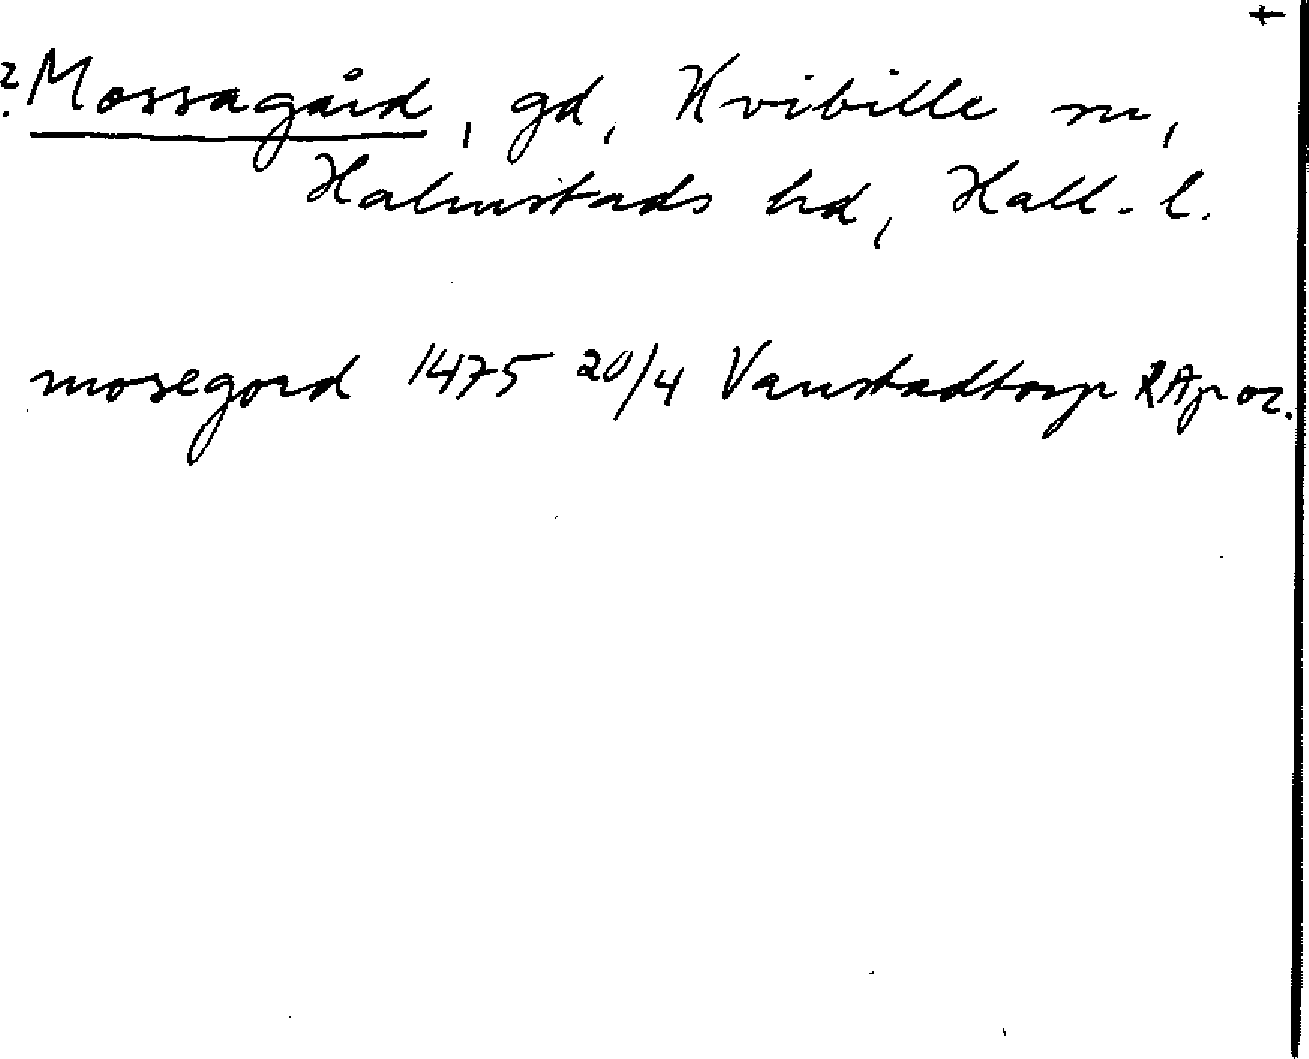 +
? Mossagård, gd, Kvibille sn,
Halmstads hd, Hall. l.
mosegord 1475 20/4 Vanstadtorp RAp or.